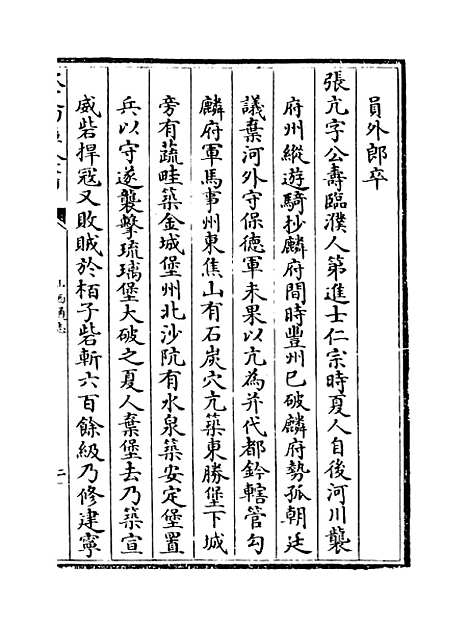 員外郎卒
張亢字公壽臨濮人第進士仁宗時夏人自後河川襲
府州縱遊騎抄麟府間時豐州已破麟府勢孤朝廷
議棄河外守保德軍未果以亢為并代都鈐轄管勾
麟府軍馬事州東焦山有石炭穴亢築東勝堡下城
旁有蔬畦築金城堡州北沙阬有水泉築安定堡置
兵以守遂襲擊琉璃堡大破之夏人棄堡去乃築宣
威砦捍冦又敗賊於栢子砦斬六百餘級乃修建寧